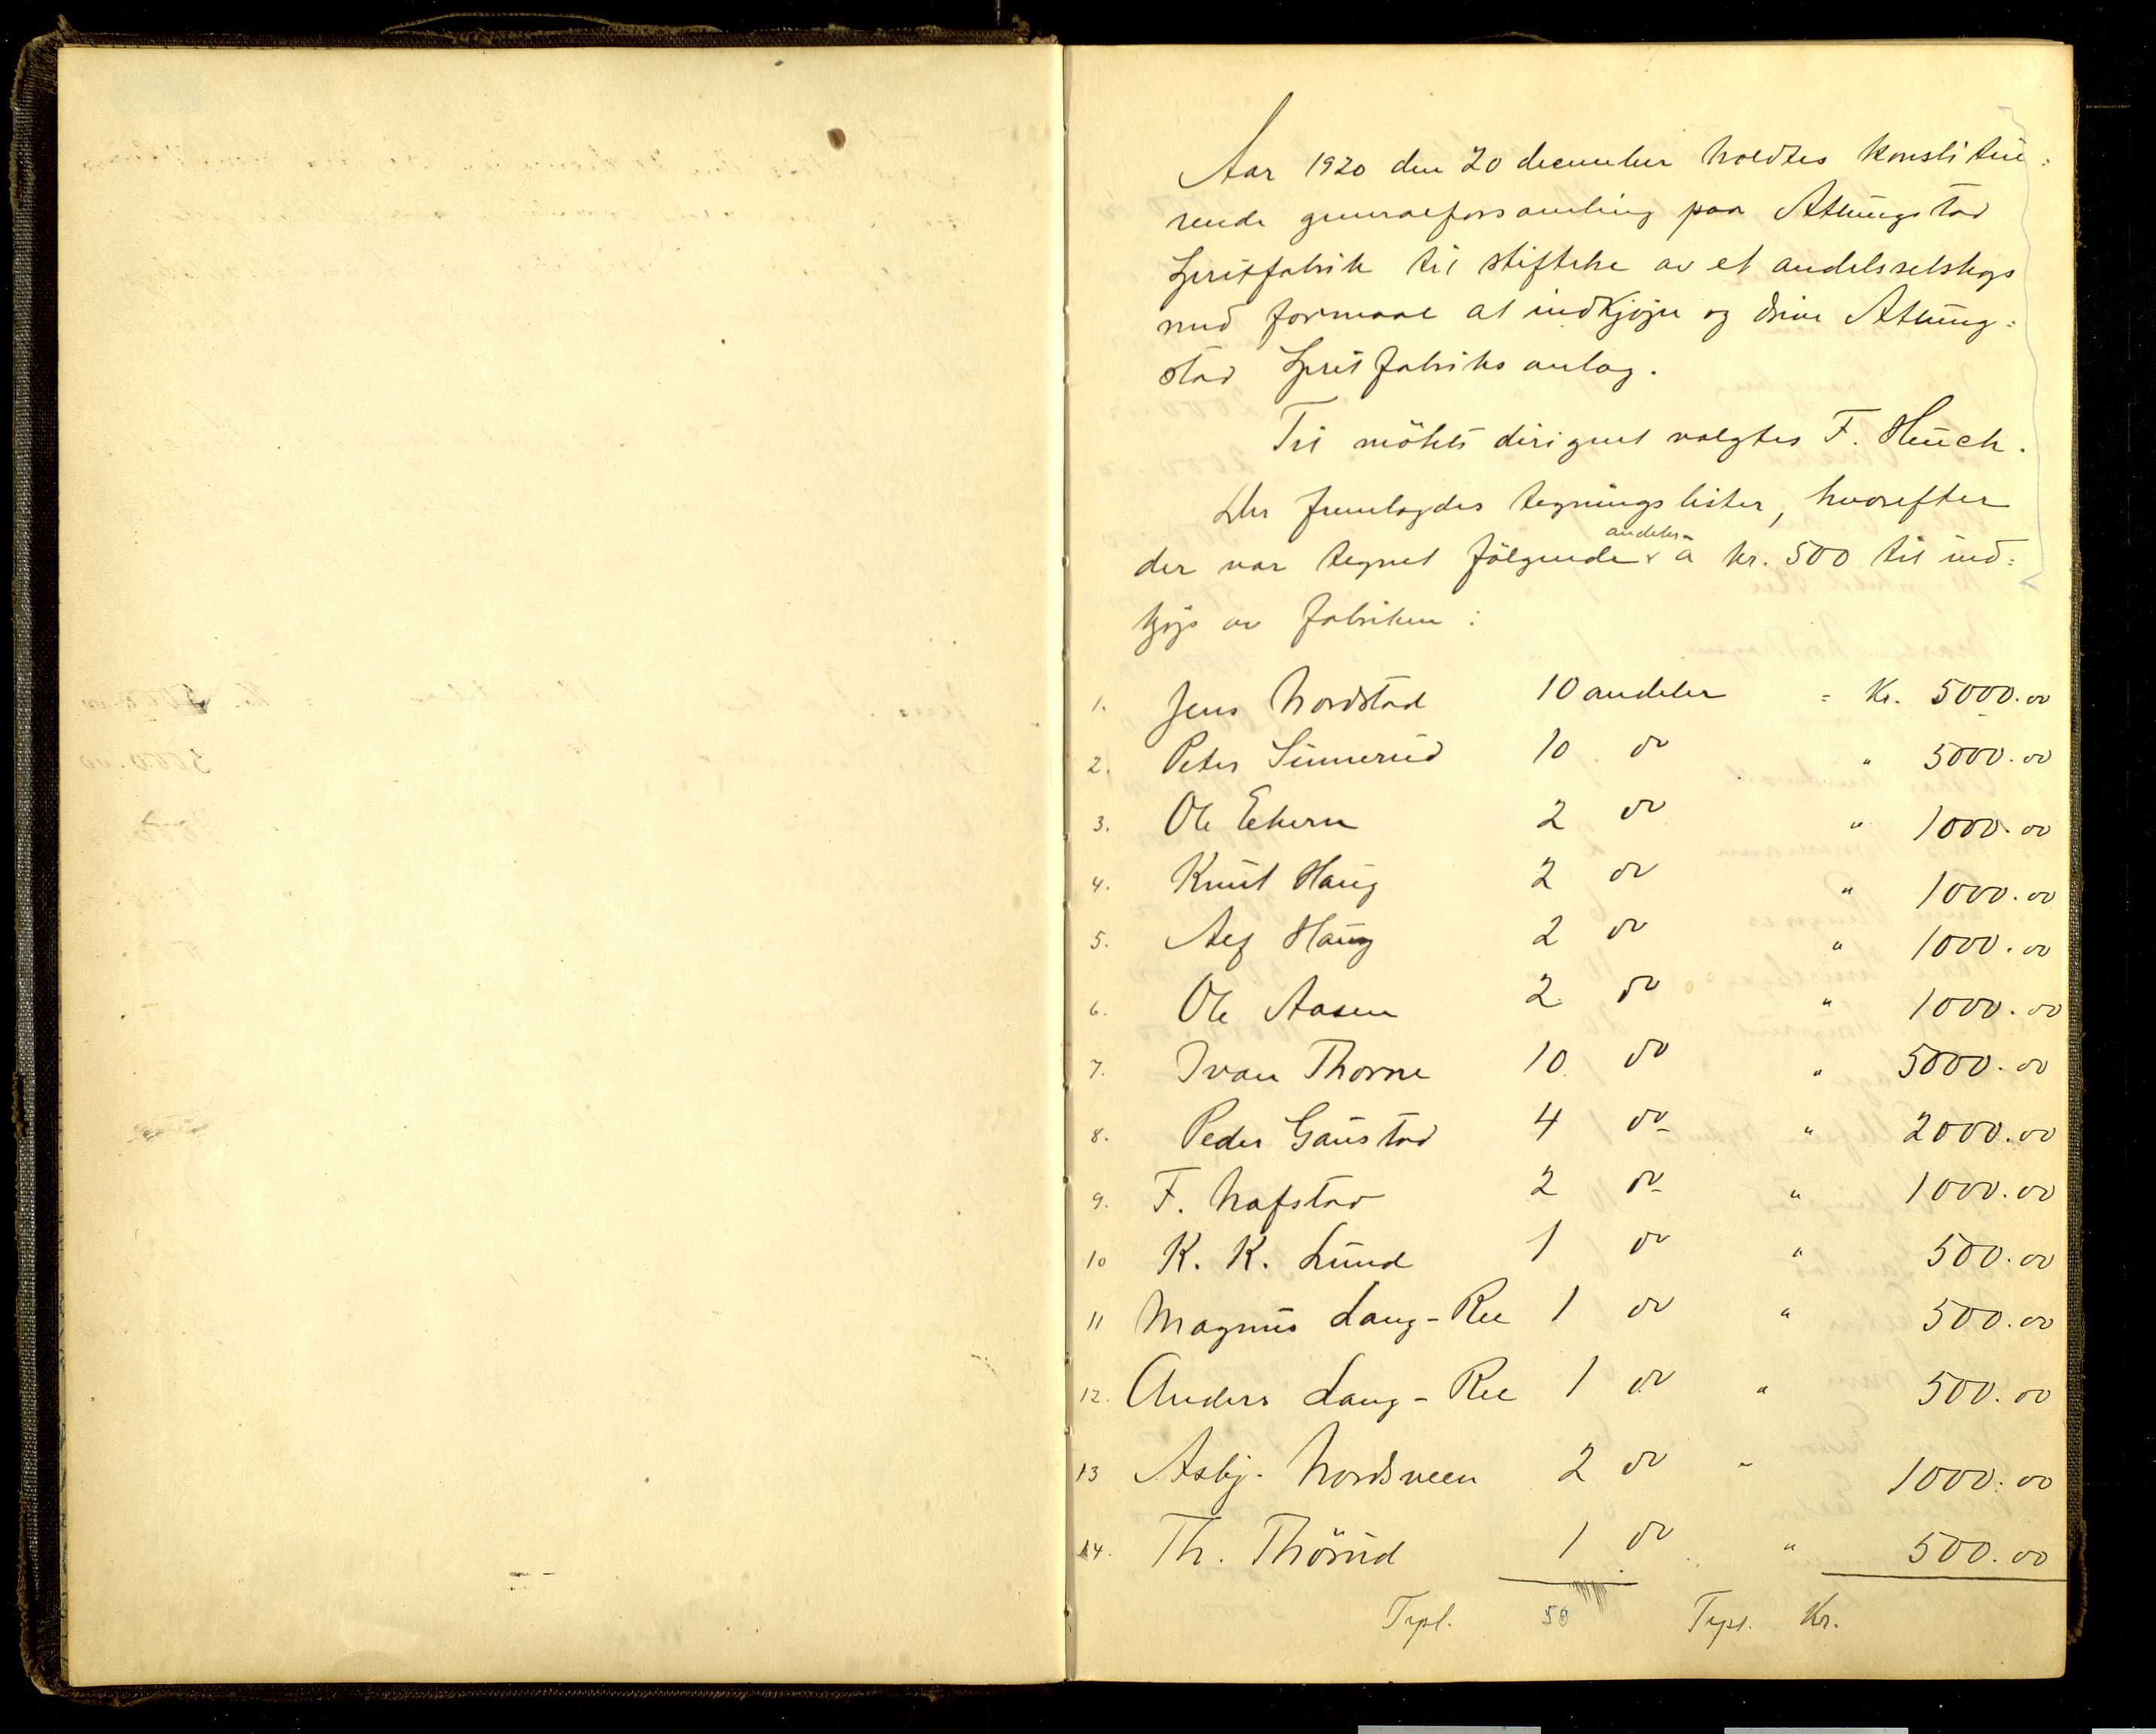 Aar 1920 den 20 december holdtes konstitue=
rende generalforsamling paa Atlungstad
Spritfabrik til stiftelse av et andelsselskap
med formaal at indkjøpe og drive Atlung=
stad Spritfabriks anlæg.
Til mötets dirigent valgtes F. Huuch.
Der fremlagdes tegningslister, hvorefter
andeler
der var tegnet fölgende à kr. 500 til ind=
kjøp av fabriken:
1. Jens Nordstad 10 andeler = Kr. 5000.00
2. Peter Sinnerud 10 do " 5000.00
3. Ole Ekern 2 do " 1000.00
4. Knut Haug 2 do " 1000.00
5. Alf Haug 2 do " 1000.00
6. Ole Aasen 2 do " 1000.00
7. Ivan Thorne 10 do " 5000.00
8. Peder Gaustad 4 do " 2000.00
9. F. Nafstad 2 do " 1000.00
10 K. K. Lund 1 do " 500.00
11 Magnus Lang-Ree 1 do " 500.00
12. Anders Lang-Ree 1 do " 500.00
13 Asbj. Nordsveen 2 do " 1000.00
14. Th. Thörud 1 do " 500.00
Trpt. 50 Trpt. Kr.